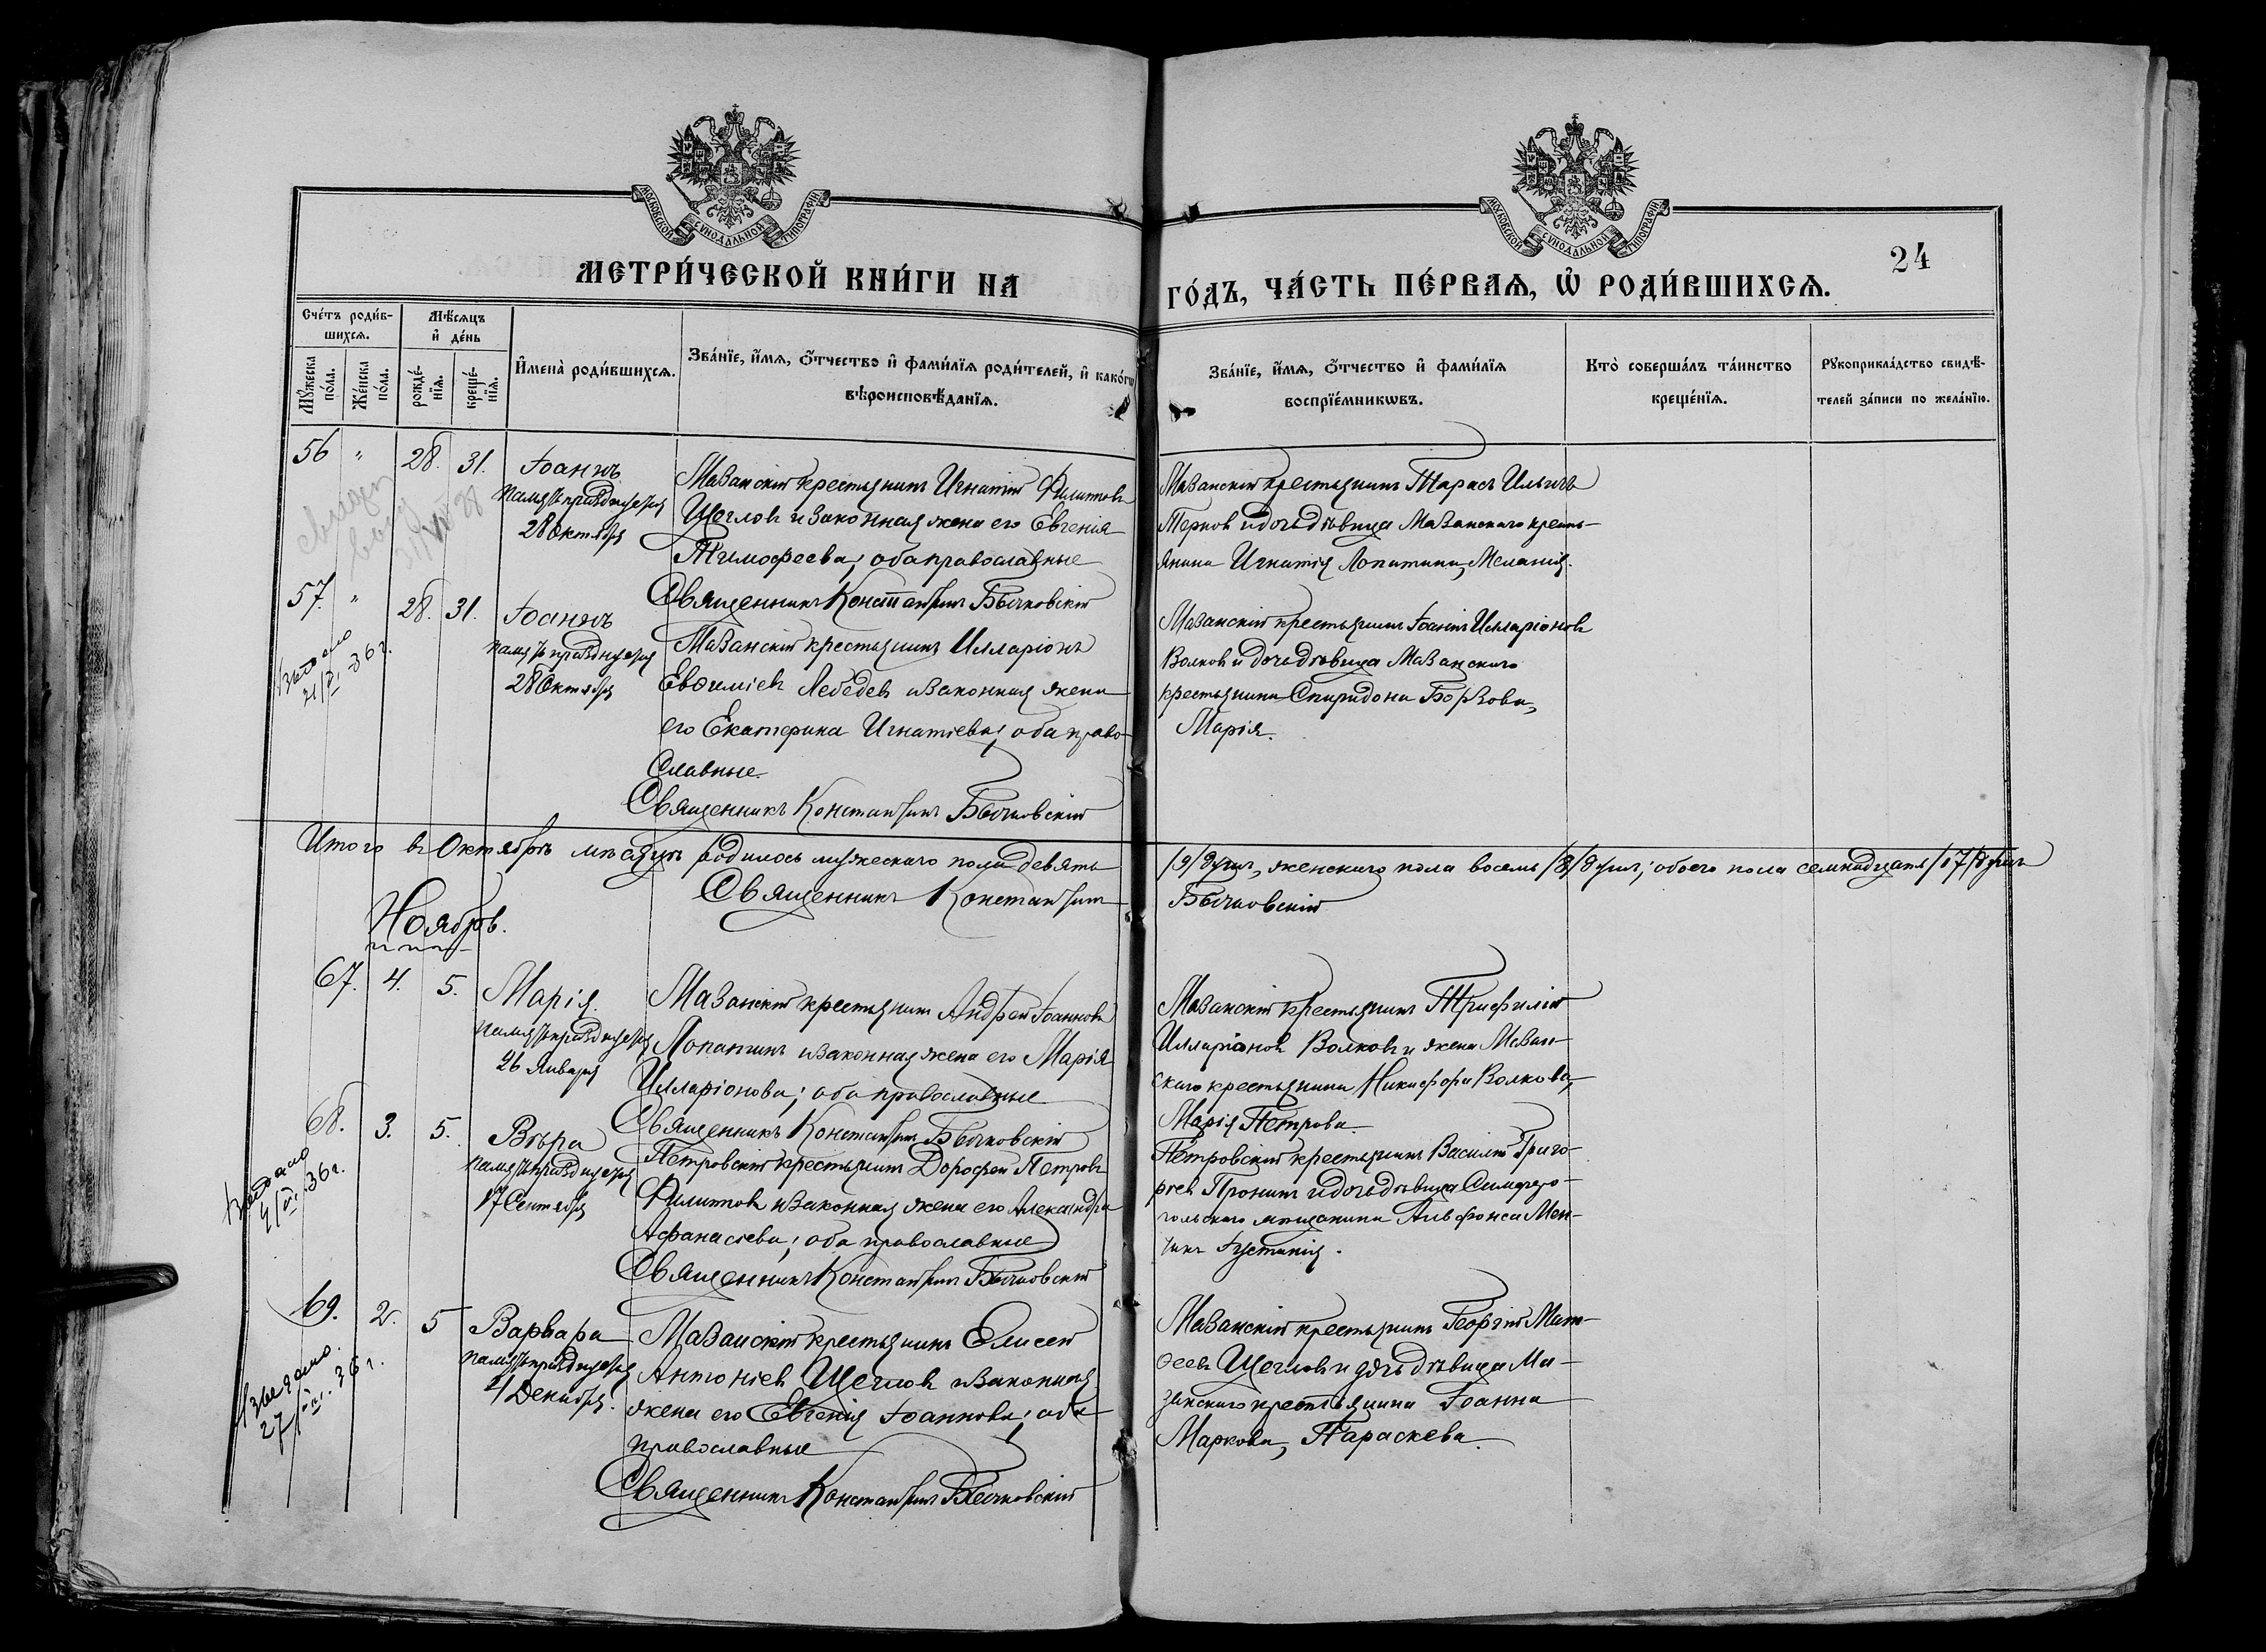 МОСКОВСКОЙ СУНОДАЛЬНОЙ ТИПОГРАФІИ
МОСКОВСКОЙ СУНОДАЛЬНОЙ ТИПОГРАФІИ
24
МЕТРИ́ЧЕСКОЙ КНИ́ГИ НА
ГО́ДЪ, ЧА́СТЬ ПЕ́РВАѦ, Ѡ҆ РОДИ́ВШИХСѦ.
Сче́тъ роди́в-
шихсѧ.
Мѣ́сѧцъ
и҆ де́нь
Мꙋ́жеска
по́ла.
Же́нска
по́ла.
рожде́-
нїѧ.
креще́-
нїѧ.
И҆мена̀ роди́вшихсѧ.
Зва́нїе, и҆́мѧ, ѻ҆́тчество и҆ фами́лїѧ роди́телей, и҆ како́гѡ
вѣроисповѣ́данїѧ.
Зва́нїе, и҆́мѧ, ѻ҆́тчество и҆ фами́лїѧ
воспрїе́мникѡвъ.
Кто̀ соверша́лъ та́инство
креще́нїѧ.
Рꙋкоприкла́дство свидѣ́-
телей за́писи по жела́нїю.
56 " 28. 31. Іоаннъ
память празднуется
28 Октября
Мазанскій крестьянинъ Игнатій Филиппов
Щеглов и законная жена его Евгенія
Тимофеева; оба православные
Священникъ Константинъ Бычковскій
Мазанскій крестьянинъ Тарасъ Ильичъ
Пернов и дочь девица Мазанскаго кресть-
янина Игнатія Лопатина, Меланія.
57. " 28. 31. Іоаннъ
память празднуется
28 Октября
Выдано
21/ 36 г.
Мазанскій крестьянинъ Илларіонъ
Евѳиміев Лебедев и законная жена
его Екатерина Игнатіева; оба право-
славные.
Священникъ Константинъ Бычковскій
Мазанскій крестьянинъ Іоаннъ Илларіонов
Волков и дочь девица Мазанскаго
крестьянина Спиридона Борзова,
Марія.
Итого въ Октябрѣ мѣсяцѣ родилось мужескаго пола девять /9/ душъ, женскаго пола восемь /8/ душъ; обоего пола семнадцать /17/ душъ
Священникъ Константинъ Бычковскій
Ноябрь.
67. 4. 5. Марія.
память празднуется
26 Января
Мазанскій крестьянинъ Андрей Іоаннов
Лопатинъ и законная жена его Марія
Илларіонова; оба православные
Священникъ Константинъ Бычковскій
Мазанскій крестьянинъ Трифилій
Илларіонов Волковъ и жена Мазан-
скаго крестьянина Никифора Волкова,
Марія Петрова.
68. 3. 5. Вѣра
память празднуется
17 Сентября
Выдано
36 г.
Петровскій крестьянинъ Дорофей Петров
Филиппов и законная жена его Александра
Афанасіева; оба православные
Священникъ Константинъ Бычковскій
Петровскій крестьянинъ Василій Григо-
ріев Пронинъ и дочь девица Симферо-
польскаго мѣщанина Альфонса Мен-
Іустинія.
69. 2. 5 Варвара
память празднуется
4 Декабря.
27/ 36 г.
Мазанскій крестьянинъ Елисей
Антоніев Щеглов и законная
жена его Евгенія Іоаннова; оба
православные
Священникъ Константинъ Бычковскій
Мазанскій крестьянинъ Георгій Мат-
ѳеевъ Щеглов и дочь девица Ма-
занскаго крестьянина Іоанна
Маркова, Параскева.